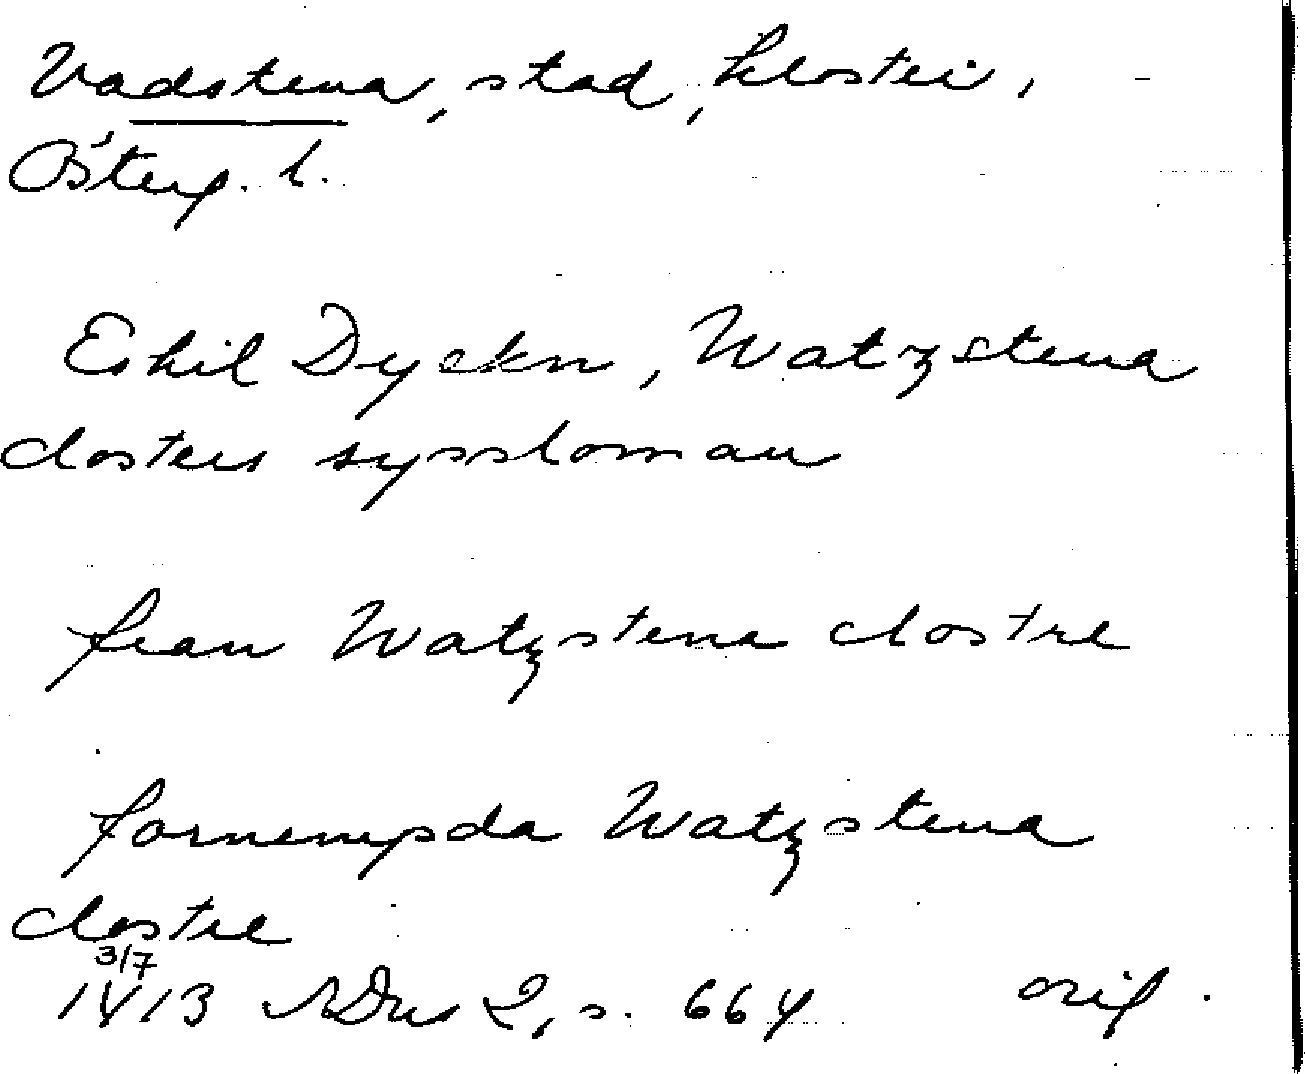 Vadstena, stad, kloster,
Österg. l.
Eskil Dyekn, Watzstena
closters syssloman
fran Watzstena clostre
fornempda Watzstena
clostre
3/7
1413 SDns 2, s. 664 orig.